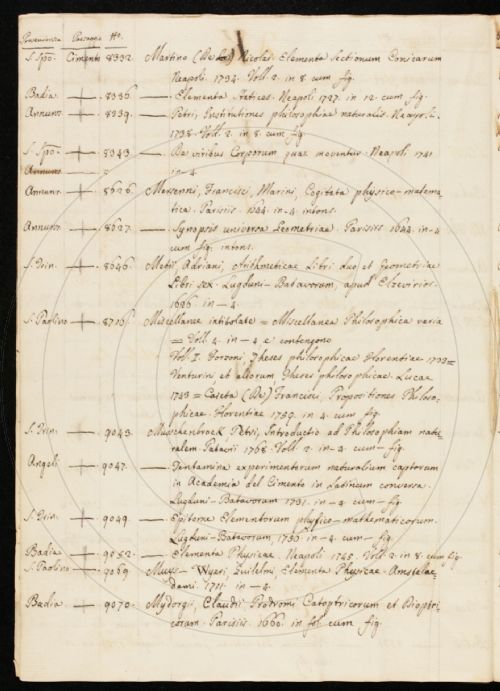 Provenienza Passaggio No.
S. Spo. Cimento 8332. Martino (De) Nicolai. Elementa Sectionum Conicarum
Neapoli. 1734. Voll. 2. in 8. cum fig.
Badia 8336. — Elementa Statices. Neapoli. 1727. in 12. cum fig.
Annunz. 8339. — Petri, Institutiones philosophiae naturalis. Neapoli.
1738. Voll. 2. in 8. cum fig.
S. Spo. 8343. — De viribus Corporum quae moventur. Neapoli. 1741
Annunz. in-4.
Annunz. 8626. Mersenni, Francisci, Marini, Cogitata physico-matema=
tica. Parisiis. 1644. in-4. intons.
Annunz. 8627. — Synopsis universa Geometriae. Parisiis 1644. in-4
cum fig. intons.
S. Trin. 8646. Metii, Adriani, Arithmeticae Libri duo, et Geometriae
Libri sex. Lugduni-Batavorum, apud Elzevirios.
1626. in-4.
S. Paolino 8716. Miscellanee intitolate = Miscellanea Philosophica varia
= Voll. 4. in-4. e contengono
Voll. I. Theses philosophicae Florentiae 1733=
Venturini et aliorum, Theses philosophicae. Lucae
1743 = Caseta (De) Francisci, Propositiones Philoso=
phicae. Florentiae 1759. in 4. cum fig.
S. Trin. 9043. Musschenbroek, Petri, Introductio ad Philosophiam natu=
ralem. Patavii 1768. Voll. 2. in-4. cum fig.
Angeli 9047. — Tentamina experimentorum naturalium captorum
in Academia del Cimento in Latinum conversa.
Lugduni-Batavorum 1731. in-4. cum fig.
S. Trin. 9049. — Epitome Elementorum physico-mathematicorum.
Lugduni-Batavorum, in-4. cum fig.
Badia 9052. — Elementa Physicae. Neapoli. 1745. Voll. 2. in 8. cum fig.
S. Paolino 9069. Muys-Wyeri, Guilelmi, Elementa Physicae. Amstelae=
dami. 1711. in-4.
Badia 9070. Mydorgii, Claudii Prodromi Catoptricorum et Dioptri=
corum. Parisiis. 1660. in fol. cum fig.